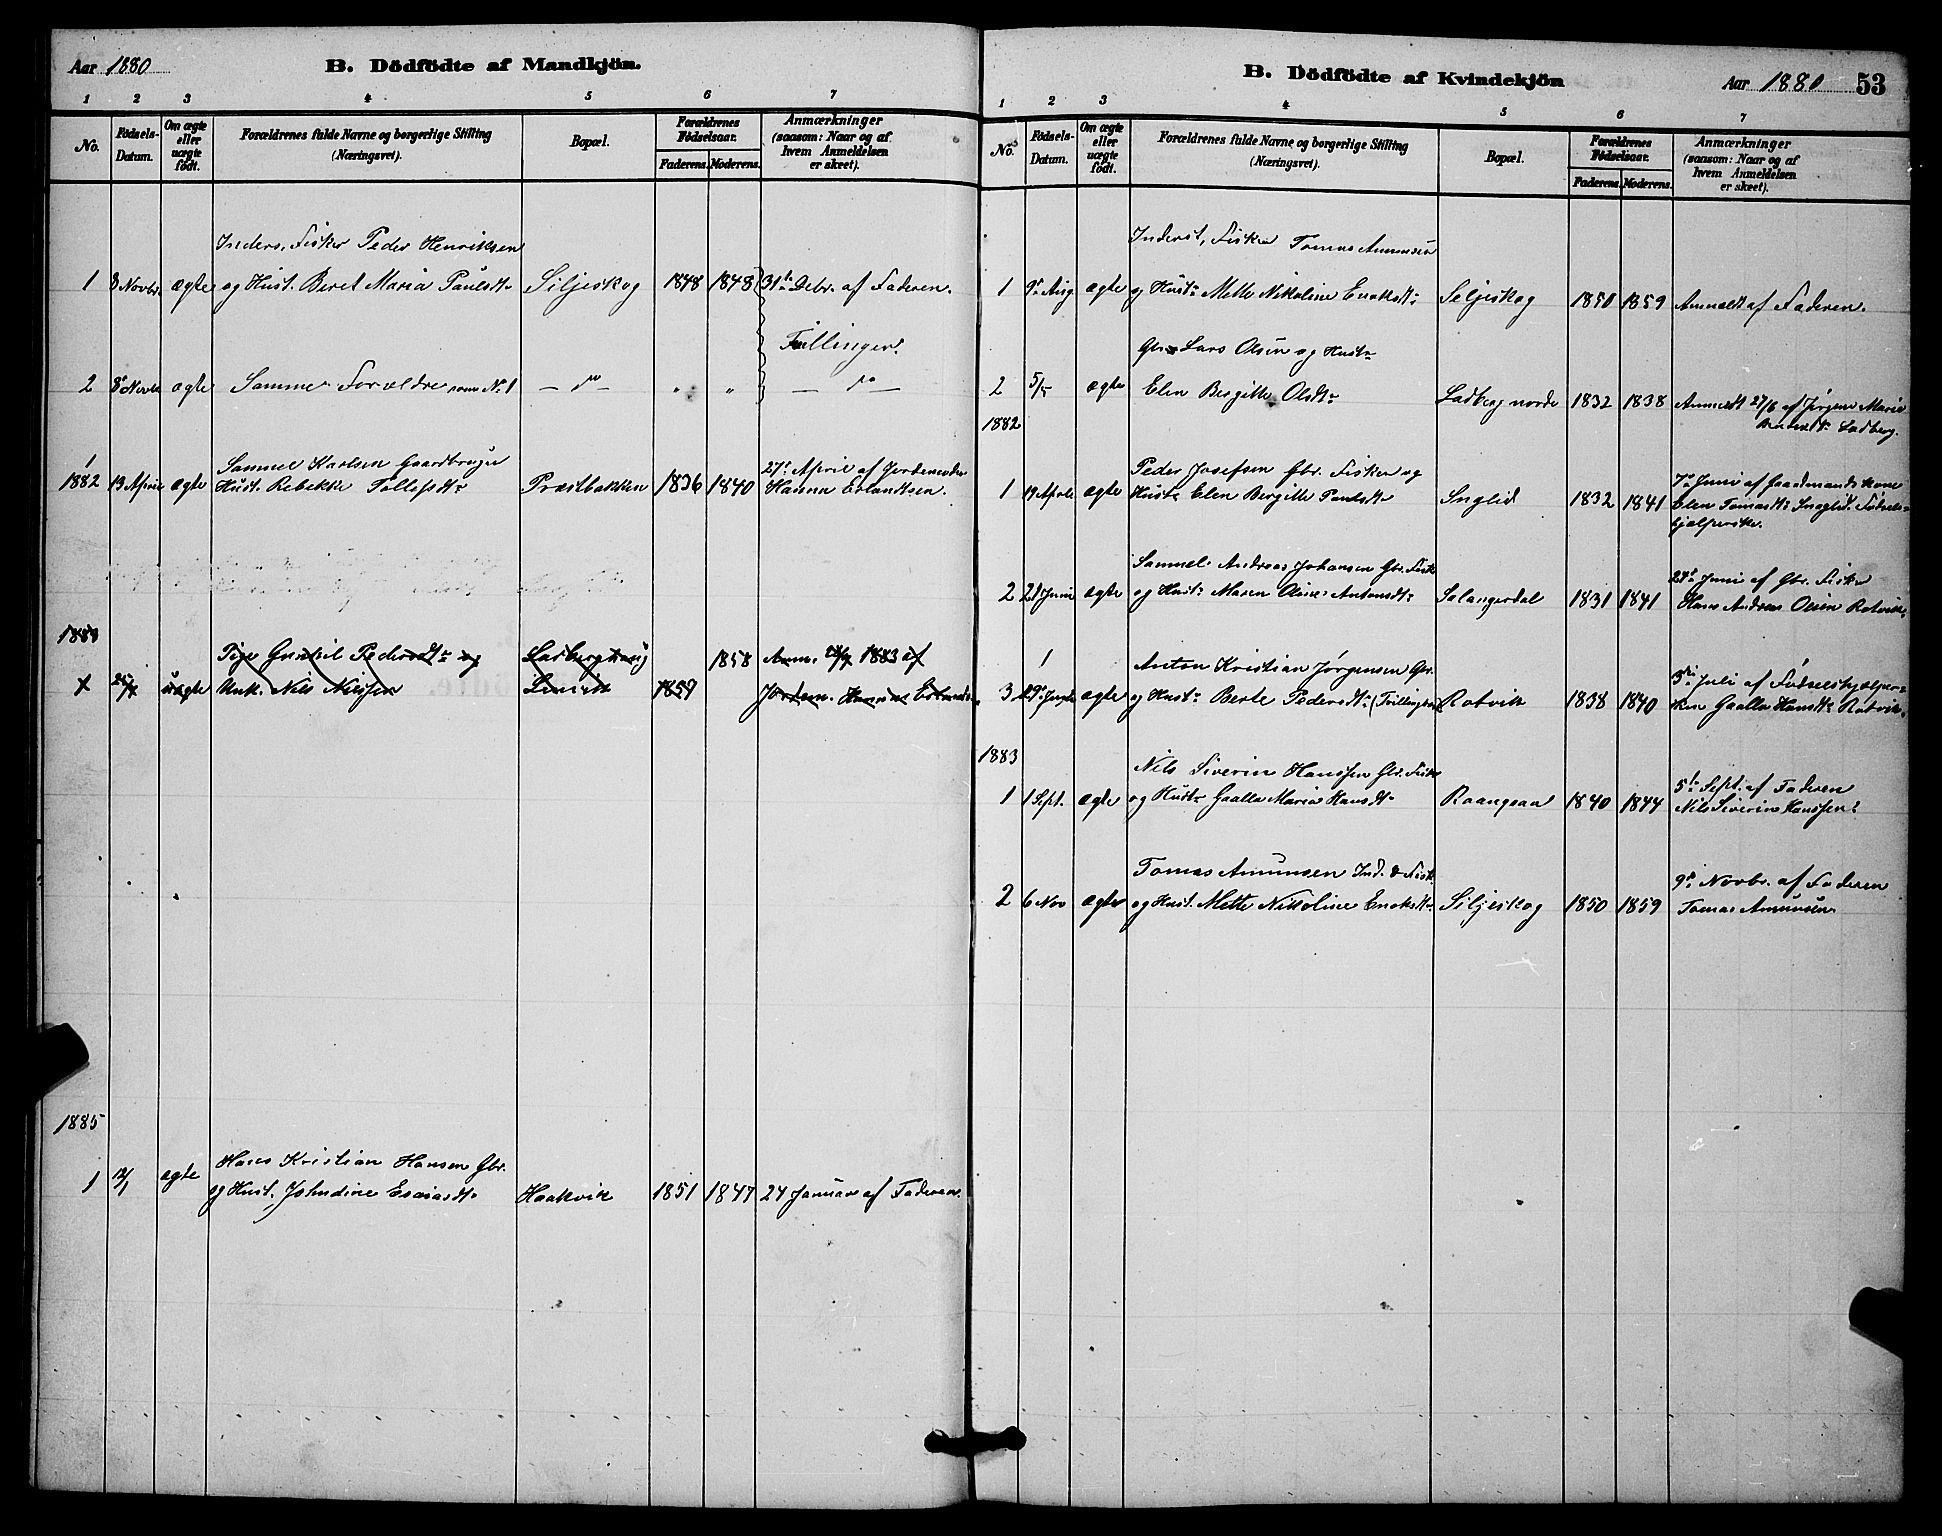 Aar 1880
B. Dödfödte af Mandkjön.
1 2 3 4 5 6 7
No.
Födsels-
Datum.
Om ægte
eller
uægte
født.
Forældrenes fulde Navne og borgerlige Stilling
(Næringsvei).
Bopæl.
Forældrenes
Födselsaar.
Faderens. Moderens.
Anmærkninger
(saasom: Naar og af
hvem Anmeldelsen
er skeet).
Inders. Fisker Peder Henriksen
1 8 Novbr. ægte og Hust. Beret Maria Paulsdtr Siljeskog 1848 1848 31te Debr. af Faderen.
Tvillinger.
2 8 Novbr ægte Samme Forældre som No 1 — do — " " — do —
1
1882 13 April ægte Samuel Karlsen Gaardbruger
Hust. Rebekke Tollefsdtr Præstbakken 1836 1840 27 April af Jordemoder
Hanna Erlandsen.
1883
Pige Gunhil Pedersdtr og
Unk. Nils Nilssen
uægte
1859 1858 Anm. 1883 af
Jordem. Hanna Erlandsen
1885
1 12/1 ægte Hans Kristian Hansen Gbr.
og Hust. Johndine Esaiasdtr Haakvik 1851 1847 24 Januar af Faderen.
B. Dödfödte af Kvindekjön
Aar 1880 53
1 2 3 4 5 6 7
No.
Födsels-
Datum.
Om ægte
eller
uægte
födt.
Forældrenes fulde Navne og borgerlige Stilling
(Næringsvei).
Bopæl.
Forældrenes
Födselsaar.
Faderens. Moderens.
Anmærkninger
(saasom: Naar og af
hvem Anmeldelsen
er skeet).
Inderst, Fisker Tomas Amunsen
1 9 Aug ægte og Hustr Mette Nikoline Enoksdtr Seljeskog 1850 1859 Anmeldt af Faderen.
Gbr Lars Olsen og Hustr
2 ægte Elen Bergitte Olsdtr Ladberg nordre 1832 1838 Anmeldt 27/6 af Jørgine Marie
Ladberg.
1882
Peder Josefsen Gbr. Fisker og
1 19 April ægte Hustr Elen Bergitte Paulsdtr Snglid 1832 1841 7de Juni af Gaardmandskone
Elen Tomasdtr Snoglid. Fødsels-
hjælperske.
Samuel Andreas Johansen Gbr. Fisk
2 21 Juni ægte og Hustr Maren Oline Antonsdtr Salangerdal 1831 1841 24de Juni af Gbr. Fisker
Hans Andreas Olsen Rotvik.
1
Anton Kristian Jørgensen Gbr.
3 29 Juni ægte og Hustr Berte Pedersdtr (Tvillinger) Rotvik 1838 1840 3die Juli af Fødselshjælper-
sken Gaalla Hansdtr Rotvik.
1883
Nils Siverin Hanssen Gbr. Fisk
1 1 Sept. ægte og Hustr Gaalla Maria Hansdtr Raangsaa 1840 1844 5te Sept. af Faderen
Nils Siverin Hanssen
Tomas Amunsen Ind. & Fisk.
2 6 Nov ægte og Hust. Mette Nikoline Enoksdtr Siljeskog 1850 1859 9de Novbr. af Faderen
Tomas Amunsen